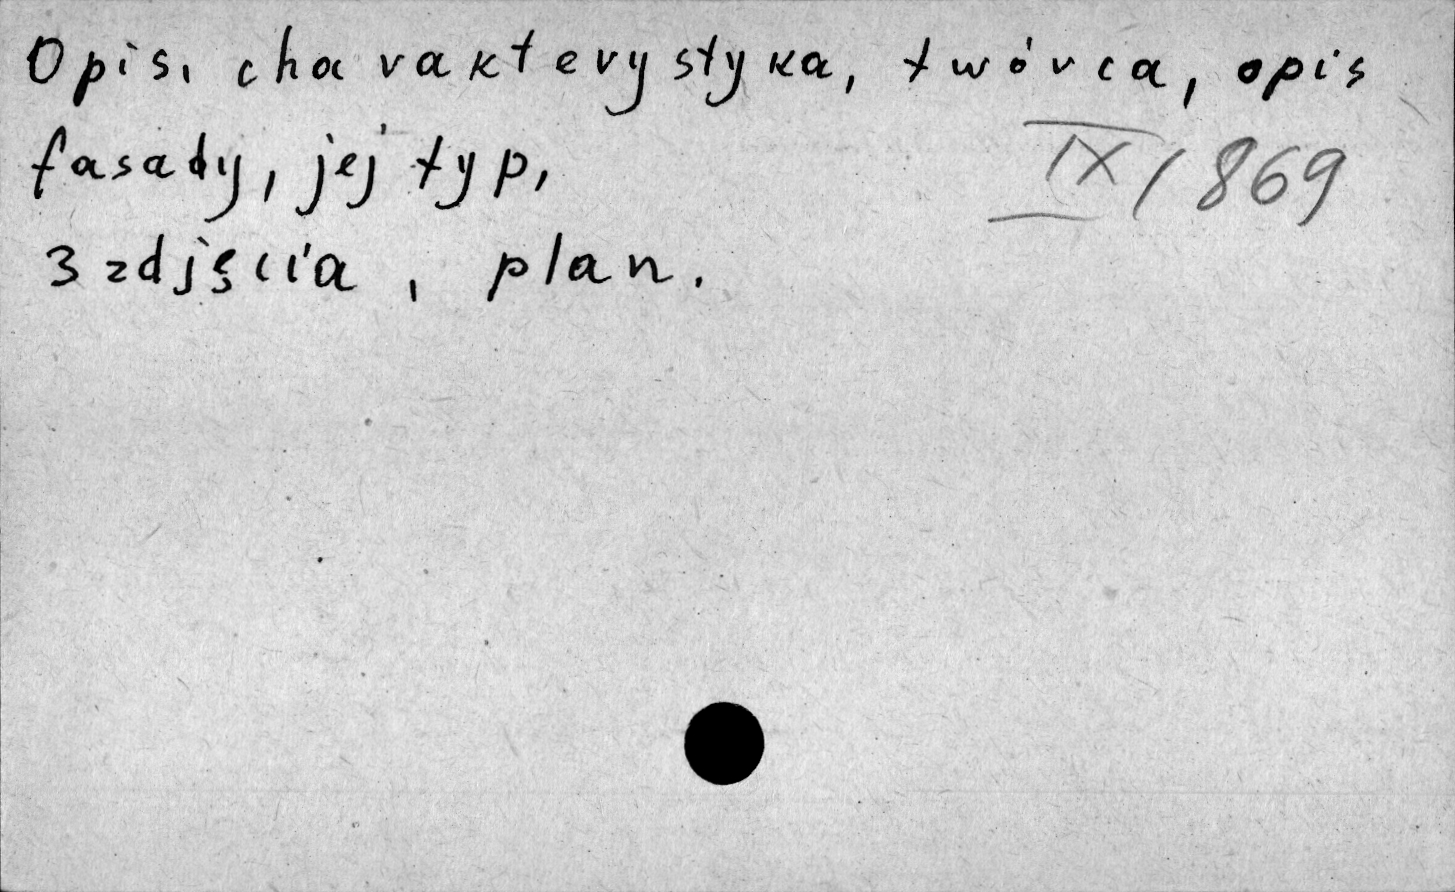 Opis, charakterystyka, twórca, opis
fasady, jej typ,
IX/869
3 zdjęcia, plan.